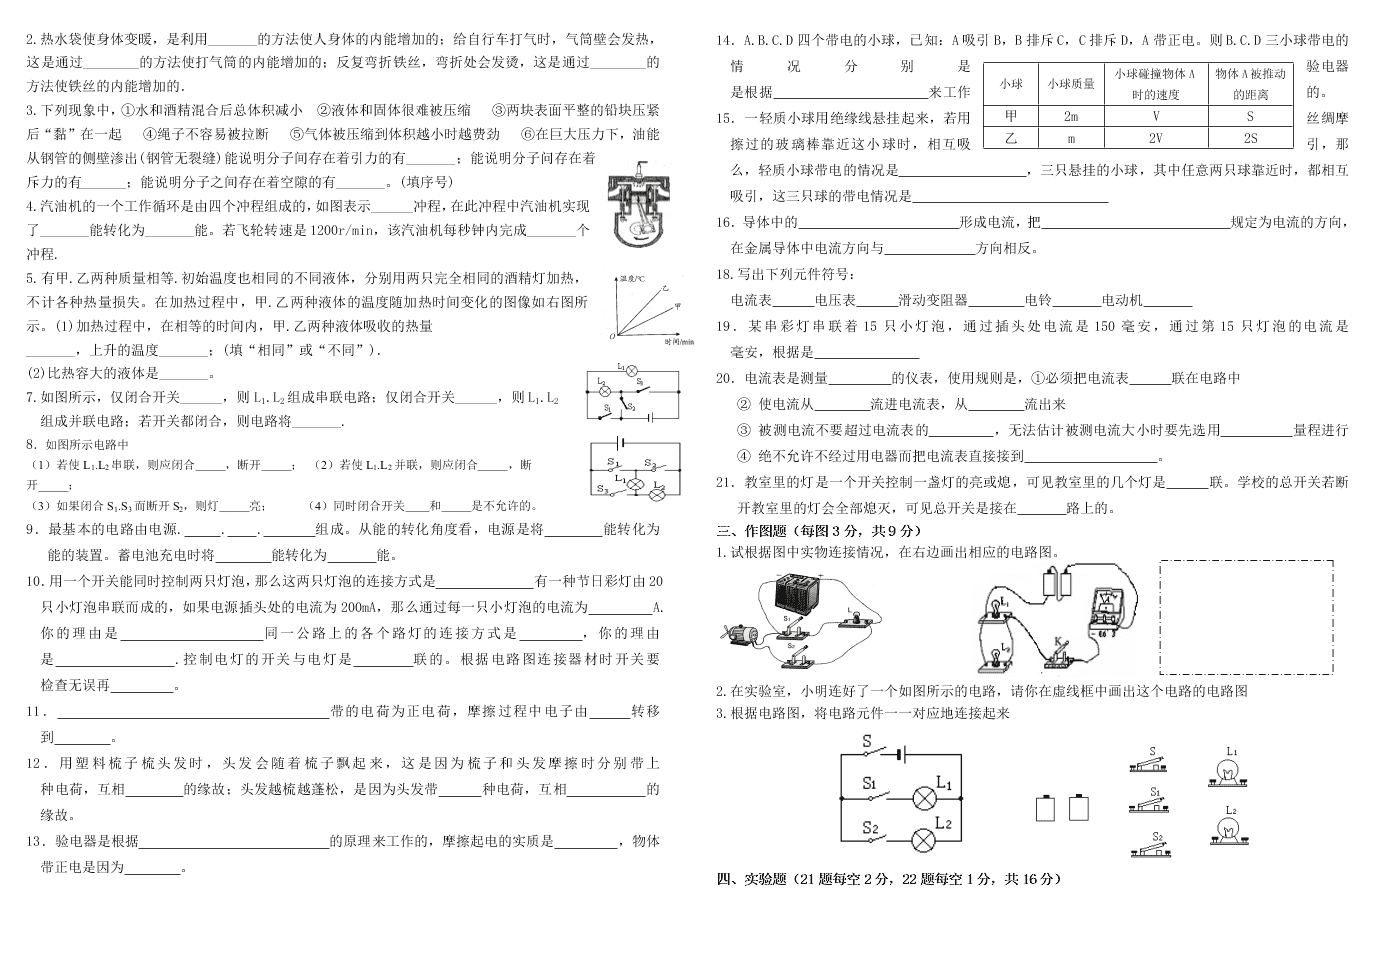 2.热水袋使身体变暖，是利用_______的方法使人身体的内能增加的；给自行车打气时，气筒壁会发热，
这是通过________的方法使打气筒的内能增加的；反复弯折铁丝，弯折处会发烫，这是通过________的
方法使铁丝的内能增加的.
3.下列现象中，①水和酒精混合后总体积减小 ②液体和固体很难被压缩 ③两块表面平整的铅块压紧
后“黏”在一起 ④绳子不容易被拉断 ⑤气体被压缩到体积越小时越费劲 ⑥在巨大压力下，油能
从钢管的侧壁渗出(钢管无裂缝)能说明分子间存在着引力的有_______；能说明分子问存在着
斥力的有______；能说明分子之间存在着空隙的有_______。(填序号)
4.汽油机的一个工作循环是由四个冲程组成的,如图表示______冲程,在此冲程中汽油机实现
了_______能转化为_______能。若飞轮转速是1200r/min，该汽油机每秒钟内完成_______个
冲程.
5.有甲.乙两种质量相等.初始温度也相同的不同液体，分别用两只完全相同的酒精灯加热，
不计各种热量损失。在加热过程中，甲.乙两种液体的温度随加热时间变化的图像如右图所
示。(1)加热过程中，在相等的时间内，甲.乙两种液体吸收的热量
_______，上升的温度_______；(填“相同”或“不同”).
(2)比热容大的液体是_______。
温度/℃
乙
甲
O
时间/min
7.如图所示，仅闭合开关______，则L1.L2组成串联电路；仅闭合开关______，则L1.L2
组成并联电路；若开关都闭合，则电路将_______.
L1
L2
S3
S1
S2
8．如图所示电路中
（1）若使L1.L2串联，则应闭合_____，断开_____； （2）若使L1.L2并联，则应闭合_____，断
开_____；
（3）如果闭合S1.S3而断开S2，则灯_____亮； （4）同时闭合开关____和_____是不允许的。
S1
S2
L1
S3
L2
9．最基本的电路由电源._____._____.________组成。从能的转化角度看，电源是将________能转化为
能的装置。蓄电池充电时将________能转化为_______能。
10.用一个开关能同时控制两只灯泡,那么这两只灯泡的连接方式是______________有一种节日彩灯由20
只小灯泡串联而成的，如果电源插头处的电流为200mA，那么通过每一只小灯泡的电流为_________A.
你的理由是____________________同一公路上的各个路灯的连接方式是_________，你的理由
是_________________.控制电灯的开关与电灯是________联的。根据电路图连接器材时开关要
检查无误再_________。
11．______________________________________带的电荷为正电荷，摩擦过程中电子由______转移
到________。
12．用塑料梳子梳头发时，头发会随着梳子飘起来，这是因为梳子和头发摩擦时分别带上
种电荷，互相________的缘故；头发越梳越蓬松，是因为头发带______种电荷，互相___________的
缘故。
13．验电器是根据___________________________的原理来工作的，摩擦起电的实质是_________，物体
带正电是因为________。
14．A.B.C.D四个带电的小球，已知：A吸引B，B排斥C，C排斥D，A带正电。则B.C.D三小球带电的
情况分别是 验电器
是根据______________________来工作 的。
小球 小球质量 小球碰撞物体A时的速度 物体A被推动的距离
甲 2m V S
乙 m 2V 2S
15．一轻质小球用绝缘线悬挂起来，若用 丝绸摩
擦过的玻璃棒靠近这小球时，相互吸 引，那
么，轻质小球带电的情况是__________________，三只悬挂的小球，其中任意两只球靠近时，都相互
吸引，这三只球的带电情况是____________________________
16．导体中的_______________________形成电流，把___________________________规定为电流的方向，
在金属导体中电流方向与_____________方向相反。
18.写出下列元件符号：
电流表______电压表______滑动变阻器________电铃_______电动机_______
19．某串彩灯串联着15只小灯泡，通过插头处电流是150毫安，通过第15只灯泡的电流是
毫安，根据是_______________
20．电流表是测量_________的仪表，使用规则是，①必须把电流表______联在电路中
② 使电流从________流进电流表，从________流出来
③ 被测电流不要超过电流表的_________，无法估计被测电流大小时要先选用__________量程进行
④ 绝不允许不经过用电器而把电流表直接接到___________________。
21．教室里的灯是一个开关控制一盏灯的亮或熄，可见教室里的几个灯是______联。学校的总开关若断
开教室里的灯会全部熄灭，可见总开关是接在_______路上的。
三、作图题（每图3分，共9分）
1.试根据图中实物连接情况，在右边画出相应的电路图。
S1
S2
L
L1
L2
K
A
2.在实验室，小明连好了一个如图所示的电路，请你在虚线框中画出这个电路的电路图
3.根据电路图，将电路元件一一对应地连接起来
S
S1
L1
S2
L2
S
S1
S2
L1
L2
四、实验题（21题每空2分，22题每空1分，共16分）